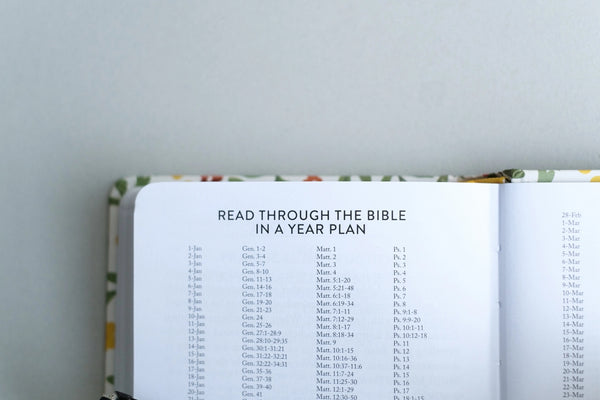 READ THROUGH THE BIBLE
IN A YEAR PLAN
1-Jan Gen. 1-2 Matt. 1 Ps. 1
2-Jan Gen. 3-4 Matt. 2 Ps. 2
3-Jan Gen. 5-7 Matt. 3 Ps. 3
4-Jan Gen. 8-10 Matt. 4 Ps. 4
5-Jan Gen. 11-13 Matt. 5:1-20 Ps. 5
6-Jan Gen. 14-16 Matt. 5:21-48 Ps. 6
7-Jan Gen. 17-18 Matt. 6:1-18 Ps. 7
8-Jan Gen. 19-20 Matt. 6:19-34 Ps. 8
9-Jan Gen. 21-23 Matt. 7:1-11 Ps. 9:1-8
10-Jan Gen. 24 Matt. 7:12-29 Ps. 9:9-20
11-Jan Gen. 25-26 Matt. 8:1-17 Ps. 10:1-11
12-Jan Gen. 27:1-28:9 Matt. 8:18-34 Ps. 10:12-18
13-Jan Gen. 28:10-29:35 Matt. 9 Ps. 11
14-Jan Gen. 30:1-31:21 Matt. 10:1-15 Ps. 12
15-Jan Gen. 31:22-32:21 Matt. 10:16-36 Ps. 13
16-Jan Gen. 32:22-34:31 Matt. 10:37-11:6 Ps. 14
17-Jan Gen. 35-36 Matt. 11:7-24 Ps. 15
18-Jan Gen. 37-38 Matt. 11:25-30 Ps. 16
19-Jan Gen. 39-40 Matt. 12:1-29 Ps. 17
20-Jan Gen. 41 Matt. 12:30-50 Ps. 18:1-15
28-Feb
1-Mar
2-Mar
3-Mar
4-Mar
5-Mar
6-Mar
7-Mar
8-Mar
9-Mar
10-Mar
11-Mar
12-Mar
13-Mar
14-Mar
15-Mar
16-Mar
17-Mar
18-Mar
19-Mar
20-Mar
21-Mar
22-Mar
23-Mar